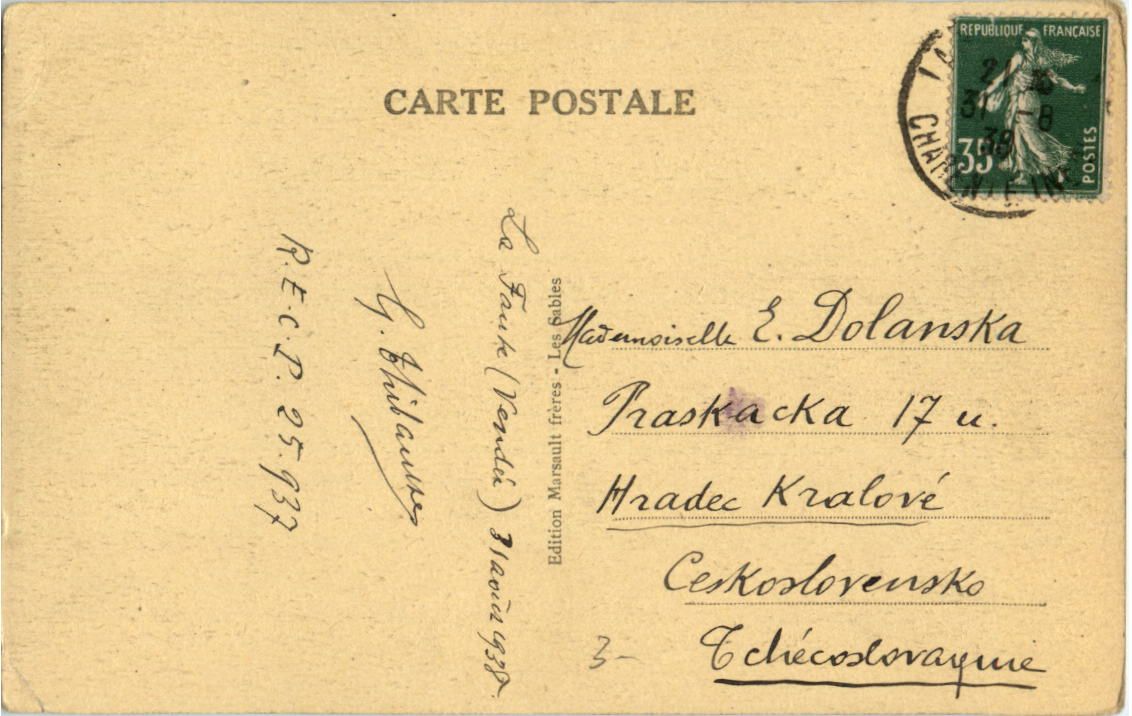 CARTE POSTALE
REPUBLIQUE FRANÇAISE
35
POSTES
21
31 -8
38
CHARENTE INF
La Faute (Vendée) 31 août 1938.
G. Thibault
R.E.C.P. 25.937
Edition Marsault frères - Les Sables
Mademoiselle E. Dolanska
Praskacka 17 u.
Hradec Kralové
Ceskoslovensko
Tchécoslovaquie
3-